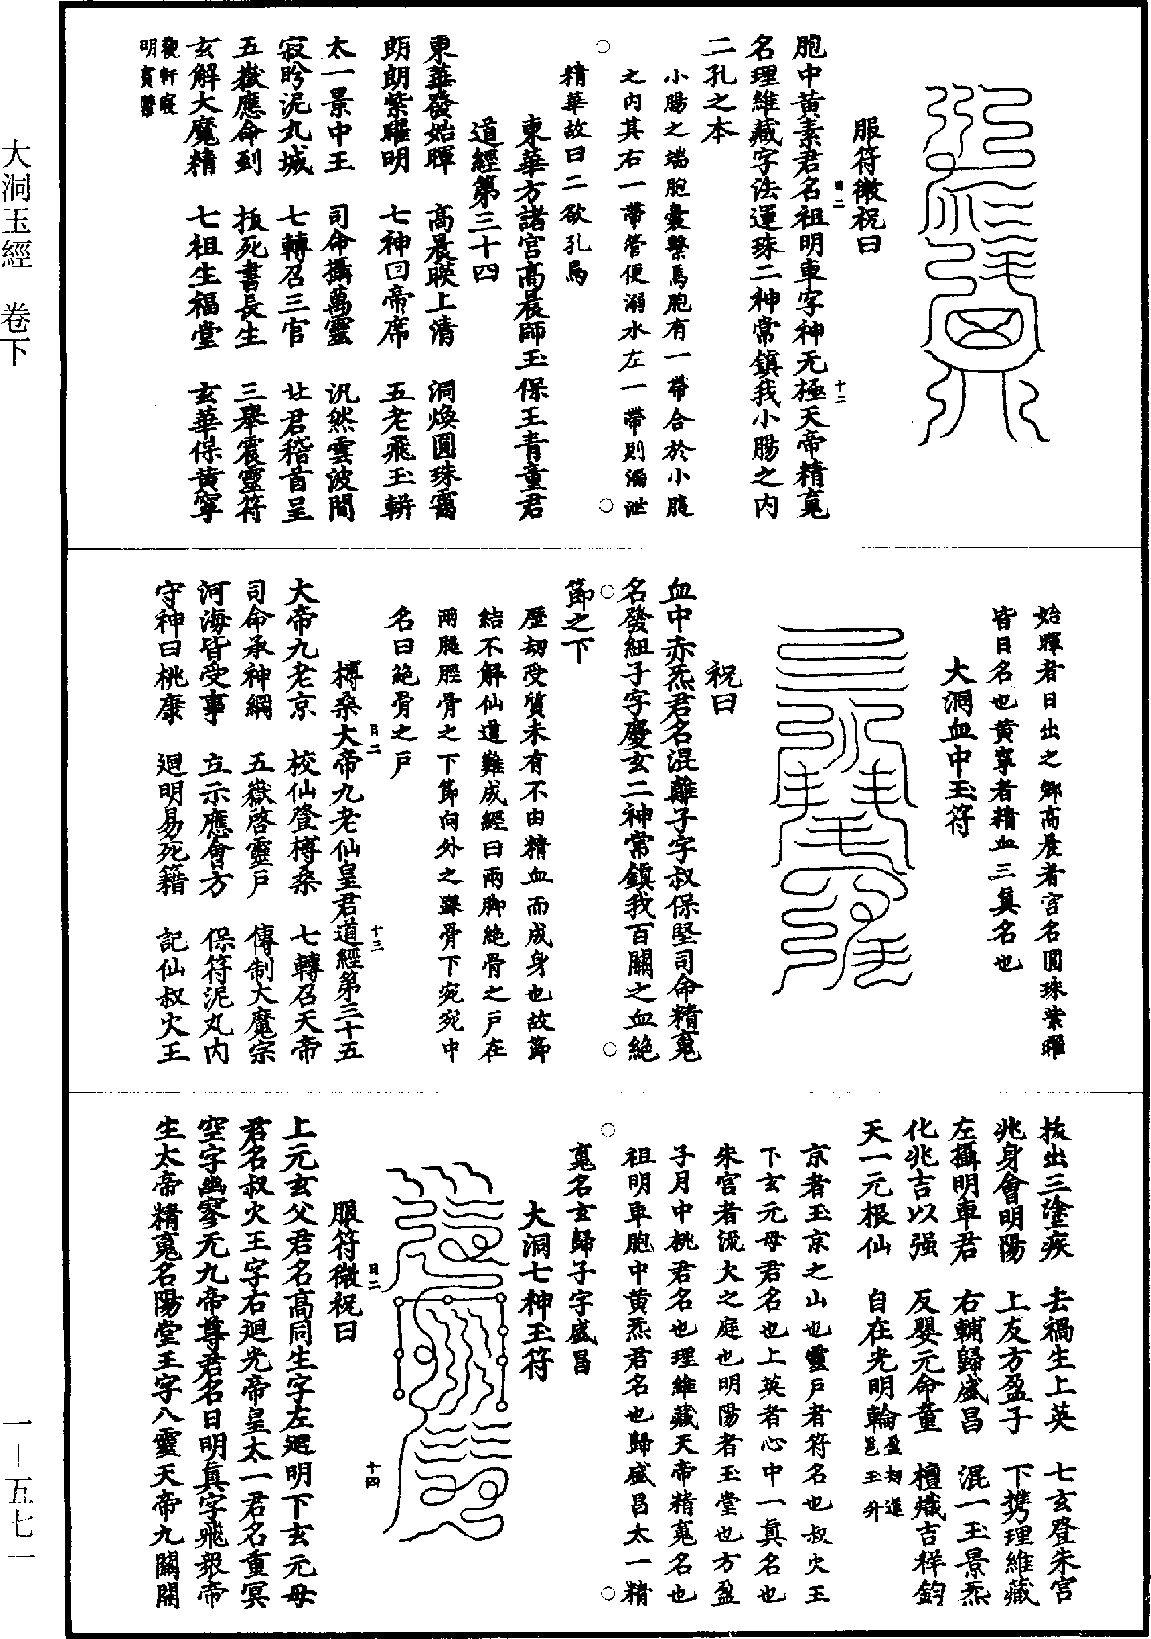 大洞玉經 卷下
一—五七一
服符微祝曰
胞中黃素君名祖明車字神无極天帝精䰟
名理維藏字法運珠二神常鎮我小腸之內
二孔之本
小腸之端胞囊繫焉胞有一帶合於小腹
之內其右一帶管便溺水左一帶則漏泄
精華故曰二欲孔焉
東華方諸宮高晨師玉保王青童君
道經第三十四
東華發始暉 高晨睒上清 洞煥圓珠䨴
朗朗紫曜明 七神回帝席 五老飛玉軿
太一景中王 司命攝萬靈 汎然雲波間
寂昤泥丸城 七轉召三官 廿君稽首呈
五嶽應命到 拔死書長生 三舉震靈符
玄解大魔精 七祖生福堂 玄華保黃寧
始暉者日出之鄉高晨者宮名圓珠紫曜
皆日名也黃寧者精血三真名也
大洞血中玉符
祝曰
血中赤炁君名混離子字叔保堅司命精䰟
名發紐子字慶玄二神常鎮我百關之血絕
節之下
歷劫受質未有不由精血而成身也故節
結不解仙道難成經曰兩脚絕骨之戶在
兩腿脛骨之下節向外之踝骨下宛宛中
名曰絕骨之戶
榑桑大帝九老仙皇君道經第三十五
大帝九老京 校仙登榑桑 七轉召天帝
司命承神綱 五嶽啓靈戶 傳制大魔宗
河海皆受事 立示應會方 保符泥丸內
守神曰桃康 迴明易死籍 記仙叔火王
拔出三塗疾 去禍生上英 七玄登朱宮
兆身會明陽 上友方盈子 下携理維藏
左攝明車君 右輔歸盛昌 混一玉景炁
化兆吉以强 反嬰元命董 檀熾吉祥鈞
天一元根仙 自在光明輪
京者玉京之山也靈戶者符名也叔火王
下玄元母君名也上英者心中一真名也
朱宮者流火之庭也明陽者玉堂也方盈
子月中桃君名也理維藏天帝精䰟名也
祖明車胞中黃炁君名也歸盛昌太一精
䰟名玄歸子字盛昌
大洞七神玉符
服符微祝曰
上元玄父君名高同生字左迴明下玄元母
君名叔火王字右迴光帝皇太一君名重冥
空字幽寥无九帝尊君名日明真字飛猳帝
生太帝精䰟名陽堂王字八靈天帝九關開